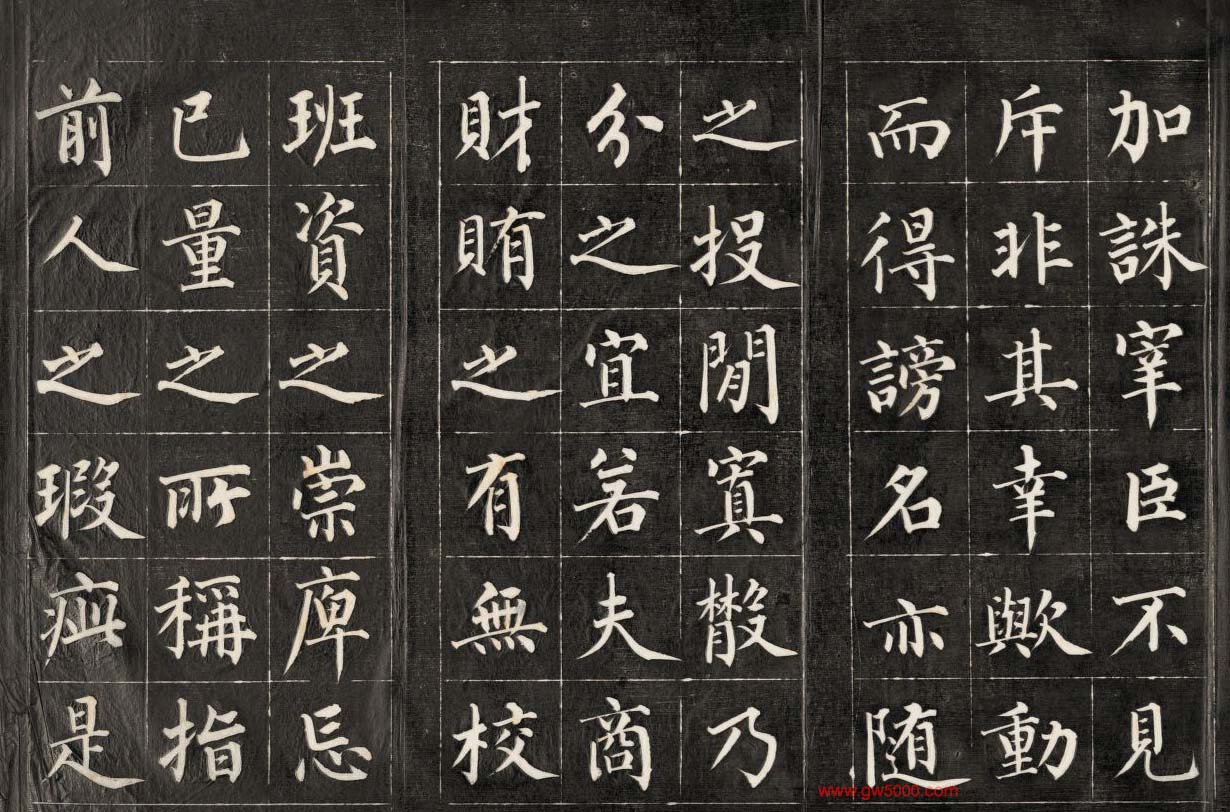 加誅宰臣不見
斥非其幸歟動
而得謗名亦随
之投閒寘散乃
分之宜若夫商
財賄之有無校
班資之崇庳忘
已量之所稱指
前人之瑕疵是
www.gw5000.com